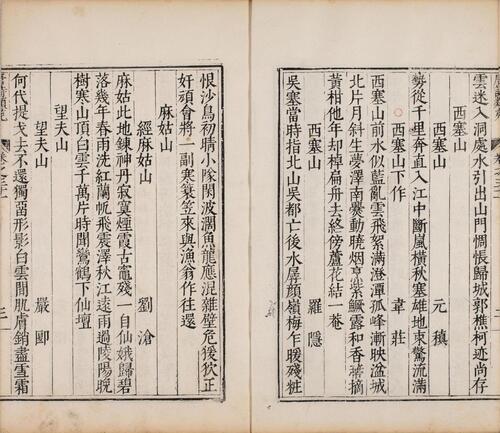 雲迷入洞處水引出山門惆悵歸城郭樵柯迹尚存
西塞山
西塞山 元稹
勢從千里奔直入江中斷嵐橫秋塞雄地束驚流滿
西塞山下作 韋莊
西塞山前水似藍亂雲飛絮滿澄潭孤峰漸映湓城
北片月斜生夢澤南爨動曉烟烹紫蕨露和香蒂摘
黃柑他年却棹扁舟去終傍蘆花結一菴
西塞山 羅隱
吳塞當時指北山吳都亡後水孱顏嶺梅乍暖殘粧
恨沙鳥初晴小隊閒波濶魚龍應混雜壁危後狖正
奸頑會將一副寒蓑笠來與漁翁作往還
麻姑山
經麻姑山 劉滄
麻姑此地鍊神丹寂寞煙霞古竈殘一自仙娥歸碧
落幾年春雨洗紅蘭帆飛震澤秋江遠雨過陵陽晚
樹寒山頂白雲千萬片時聞鸞鶴下仙壇
望夫山
望夫山 嚴郾
何代提戈去不還獨留形影白雲間肌膚銷盡雪霜